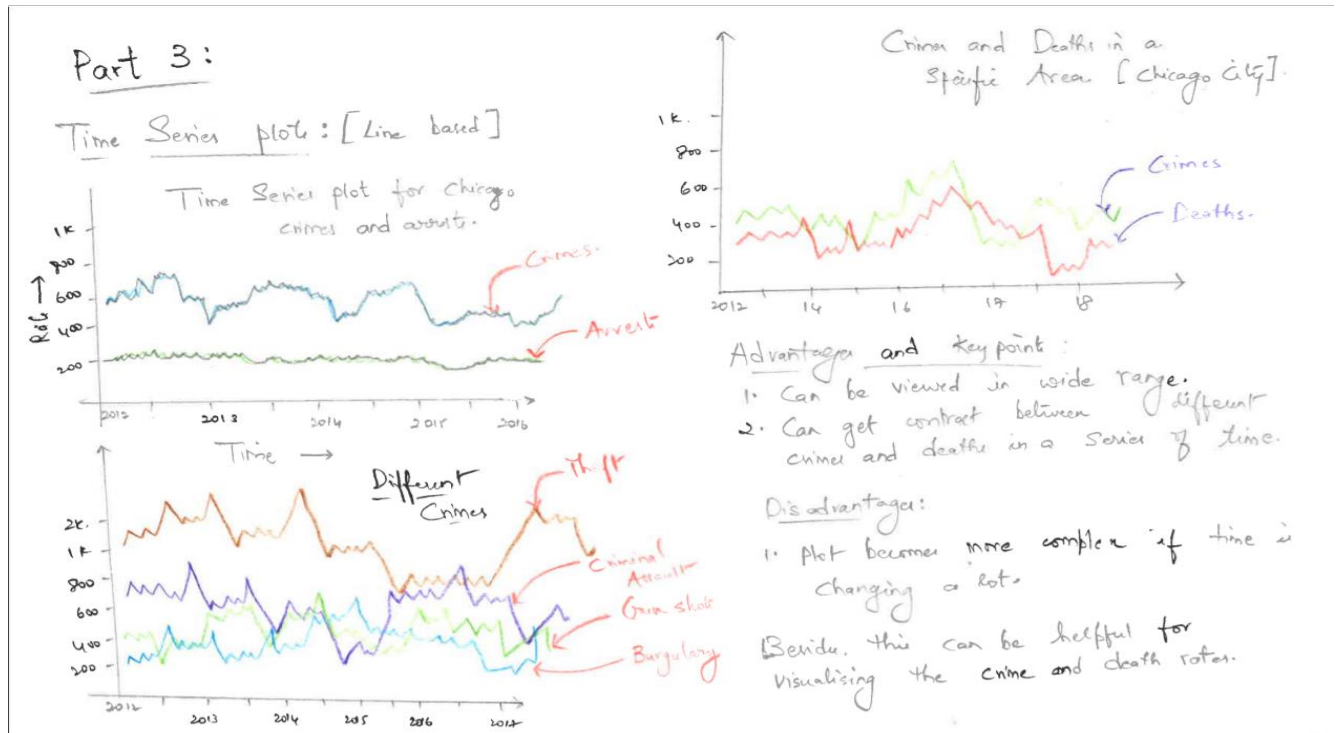 Part 3:
Time Series plots: [Line based]
Time Series plot for chicago
crimes and arrest.
1K
800
600
400
200
Rate
Crimes.
Arrest
2012
2013
2014
2015
2016
Time
Different
Crimes
Theft
Criminal
Assault
Gun shot
Burgulary
2K.
1K
800
600
400
200
2012
2013
2014
2015
2016
2017
Crimes and Deaths in a
Specific Area [Chicago City].
1K.
800
600
400
200
Crimes
Deaths.
2012
14
16
17
18
Advantages and Key point:
1. Can be viewed in wide range.
2. Can get contract between different
crimes and deaths in a series of time.
Disadvantages:
1. Plot becomes more complex if time is
changing a lot.
Beside, this can be helpful for
visualising the crime and death rates.